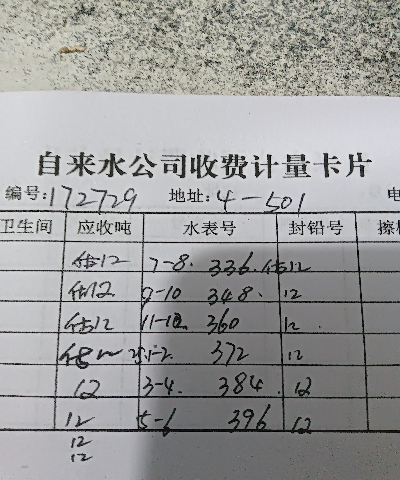 自来水公司收费计量卡片
编号:172729 地址:4-501 电
卫生间 应收吨 水表号 封铅号 擦
估12 7-8. 336. 估12
估12 9-10 348. 12
估12 11-12 360 12
1-2. 372 12
12 3-4. 384. 12
12 5-6 396 12
12
12